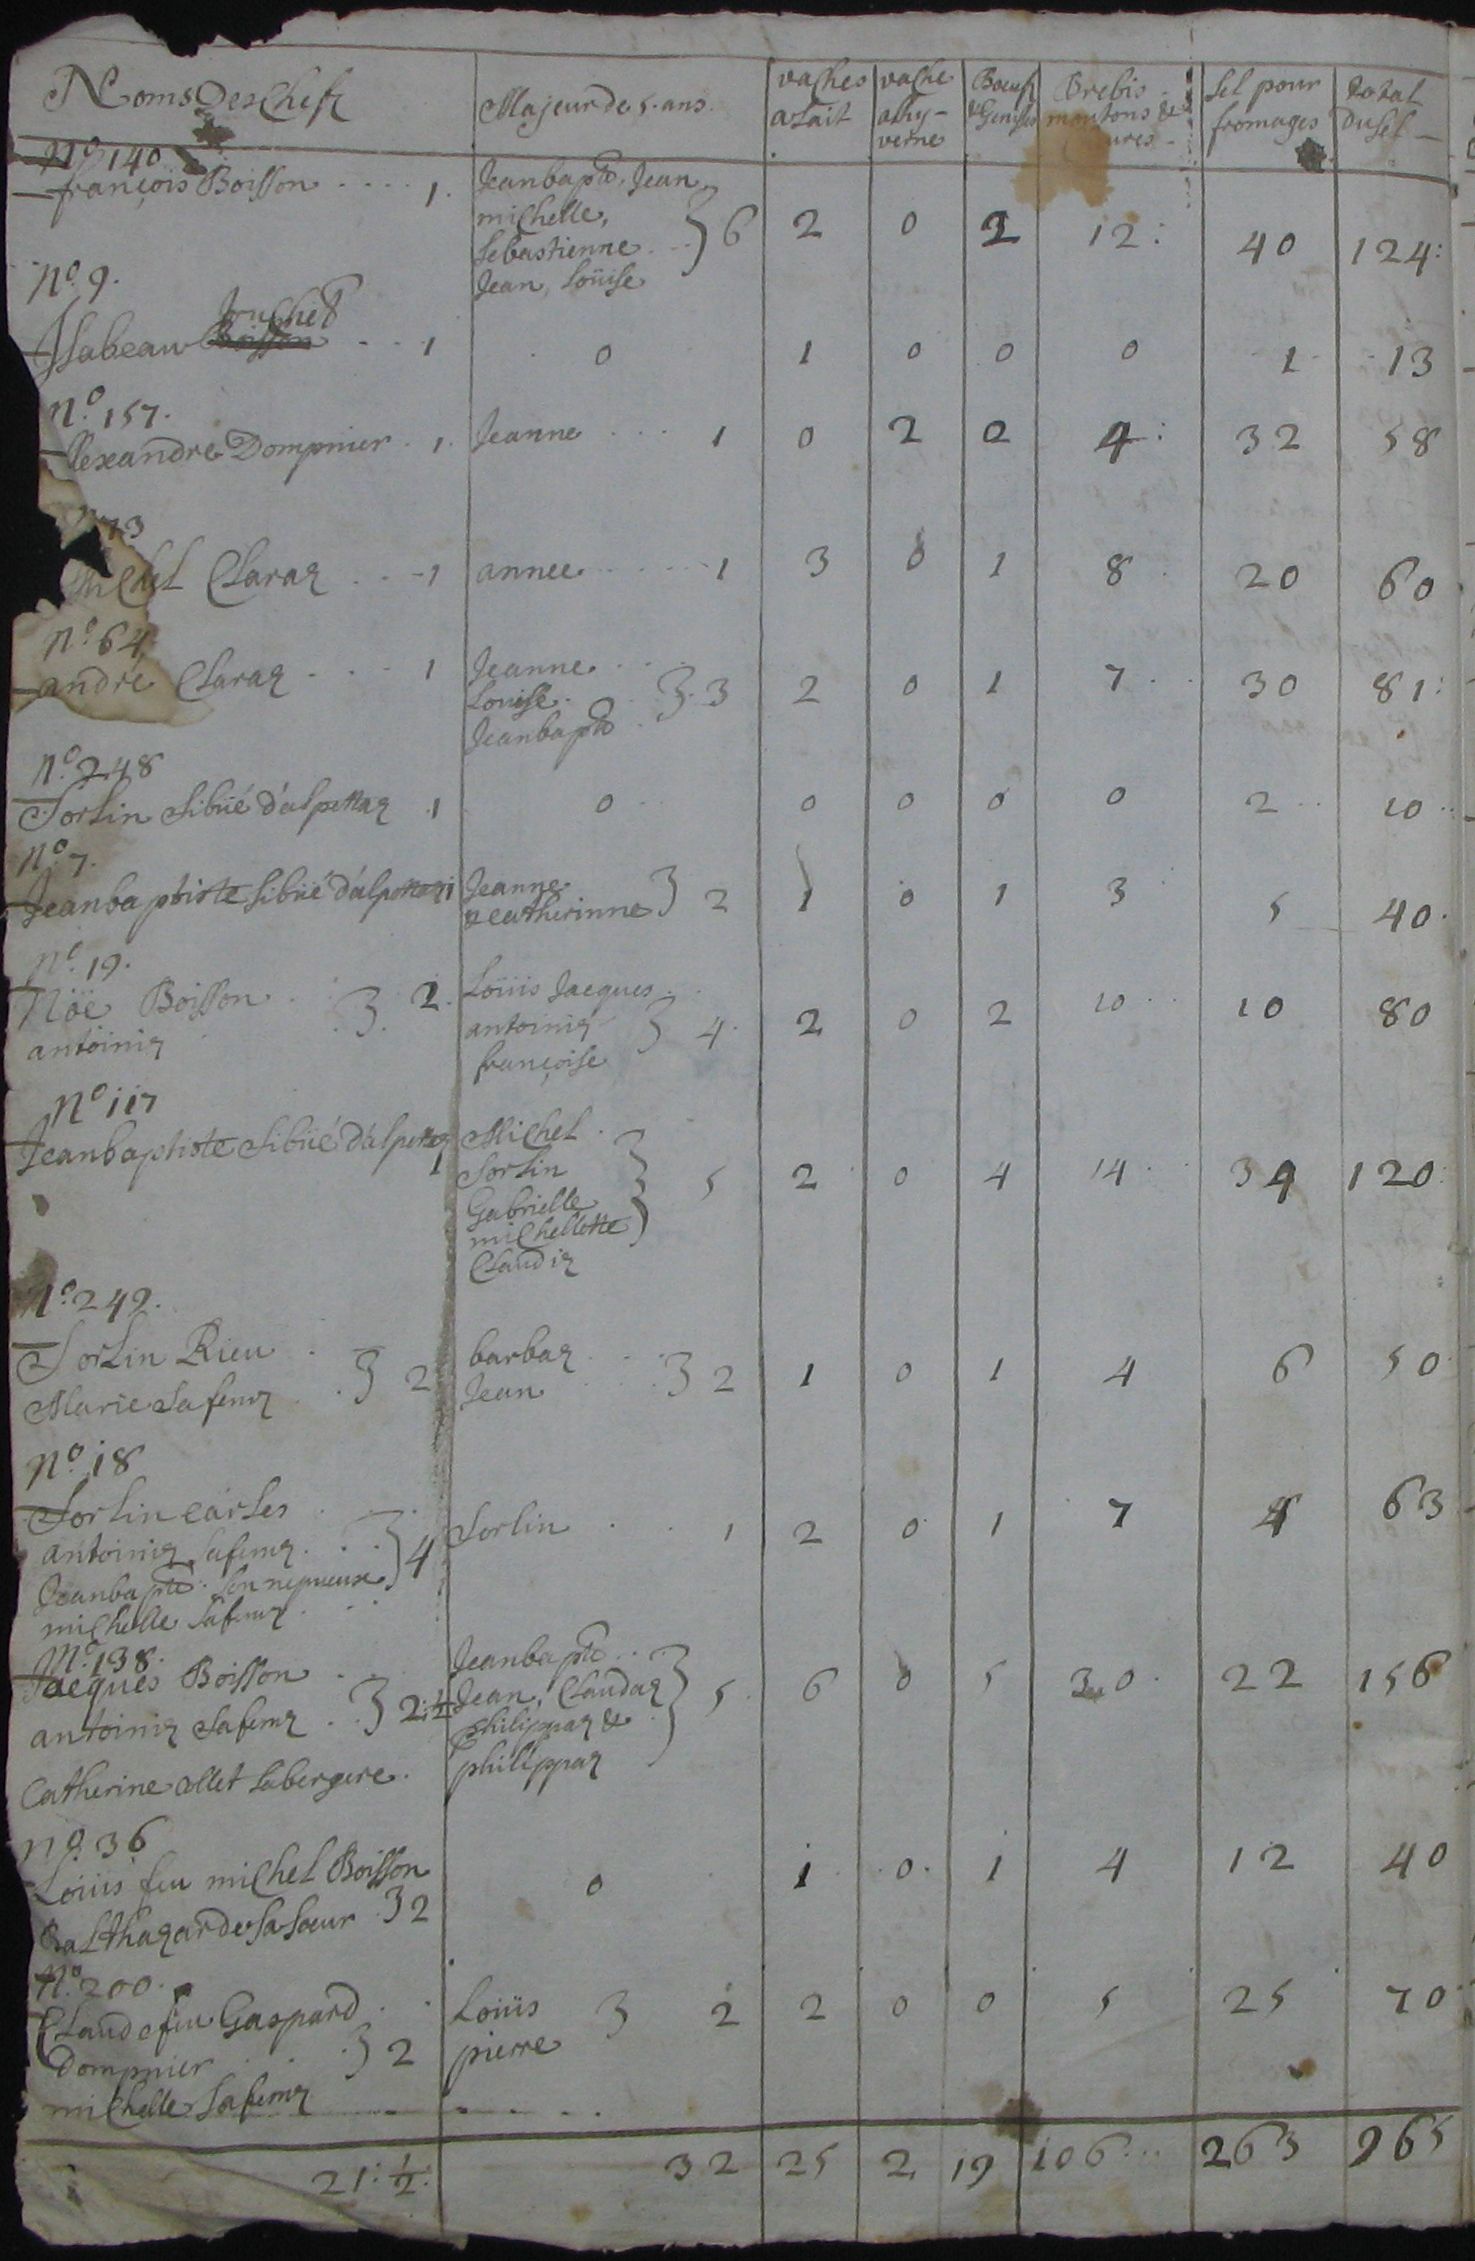 Noms Des Chefz Majeur de 5. ans. vaches a Lait vache a Hy-verne Boeufs & Genisses Brebis moutons & sel pour fromages total Du sel
N.o 140
françois Boisson 1. Jeanbapte, Jean
michelle,
sebastienne } 6 2 0 2 12: 40 124:
Jean, Loüise
N.o 9.
Jouchet
Isabeau Boisson 1 0 1 0 0 0 1 13
N.o 157.
Alexandre Dompnier 1. Jeanne 1 0 2 0 4: 32 58
73
Michel Claraz 1 annee 1 3 0 1 8 20 60
N.o 64
andré Claraz 1 Jeanne
Louise } 3 2 0 1 7 30 81:
Jeanbapte
N.o 248
Sorlin Sibüé d'alpettaz 1 0 0 0 0 0 2 10
N.o 7.
Jeanbaptiste Sibüé d'alpettaz 1 Jeanne
& catherinne } 2 1 0 1 3 5 40.
N.o 19.
Nöe Boisson } 2. Loüis Jacques
antoiniz antoiniz } 4. 2 0 2 10 10 80
françoise
N.o 117
Jeanbaptiste Sibüé d'alpettaz 1 Michel
Sorlin
Gabrielle } 5 2 0 4 14 34 120:
michellotte
Claudiz
N.o 249.
Sorlin Rieu } 2 barbaz } 2 1 0 1 4 6 50
Marie Sa femz Jean
N.o 18
Sorlin Carles Sorlin 1 2 0 1 7 4 63
antoiniz Sa femz } 4
Jeanbapte son nepueux
michelle Sa femz
N.o 138.
Jacques Boisson Jeanbapte
antoiniz Sa femz } 2:1/2 Jean, Claudaz } 5 6 0 5 30 22 156
philippaz &
Catherine ollet La bergere. philippaz
N.o 36
Loüis feu michel Boisson 0 1 0 1 4 12 40
Balthazarde Sa Soeur } 2
N.o 200.
Claude feu Gaspard Loüis } 2 2 0 0 5 25 70
Dompnier } 2 pierre
michelle Sa femz
21:1/2. 32 25 2 19 106 263 965